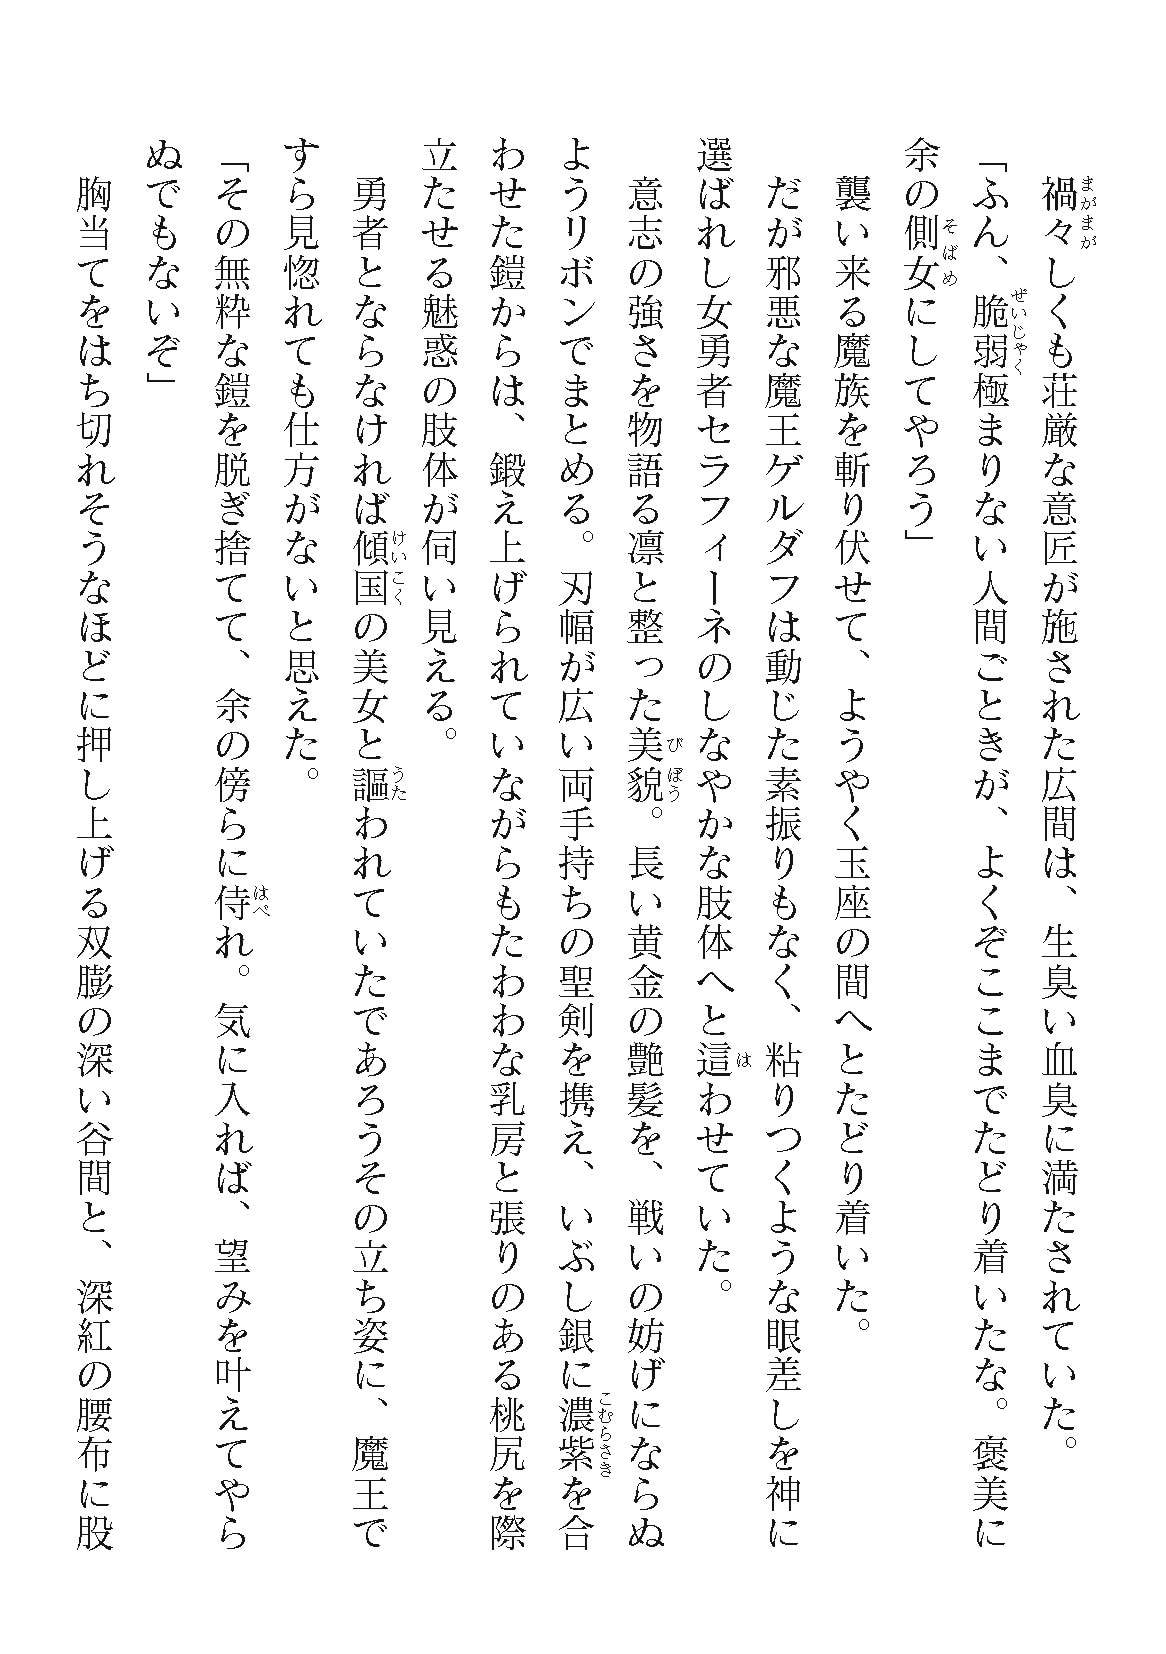 禍々しくも荘厳な意匠が施された広間は、生臭い血臭に満たされていた。
「ふん、脆弱極まりない人間ごときが、よくぞここまでたどり着いたな。褒美に
余の側女にしてやろう」
襲い来る魔族を斬り伏せて、ようやく玉座の間へとたどり着いた。
だが邪悪な魔王ゲルダフは動じた素振りもなく、粘りつくような眼差しを神に
選ばれし女勇者セラフィーネのしなやかな肢体へと這わせていた。
意志の強さを物語る凛と整った美貌。長い黄金の艶髪を、戦いの妨げにならぬ
ようリボンでまとめる。刃幅が広い両手持ちの聖剣を携え、いぶし銀に濃紫を合
わせた鎧からは、鍛え上げられていながらもたわわな乳房と張りのある桃尻を際
立たせる魅惑の肢体が伺い見える。
勇者とならなければ傾国の美女と謳われていたであろうその立ち姿に、魔王で
すら見惚れても仕方がないと思えた。
「その無粋な鎧を脱ぎ捨てて、余の傍らに侍れ。気に入れば、望みを叶えてやら
ぬでもないぞ」
胸当てをはち切れそうなほどに押し上げる双膨の深い谷間と、深紅の腰布に股